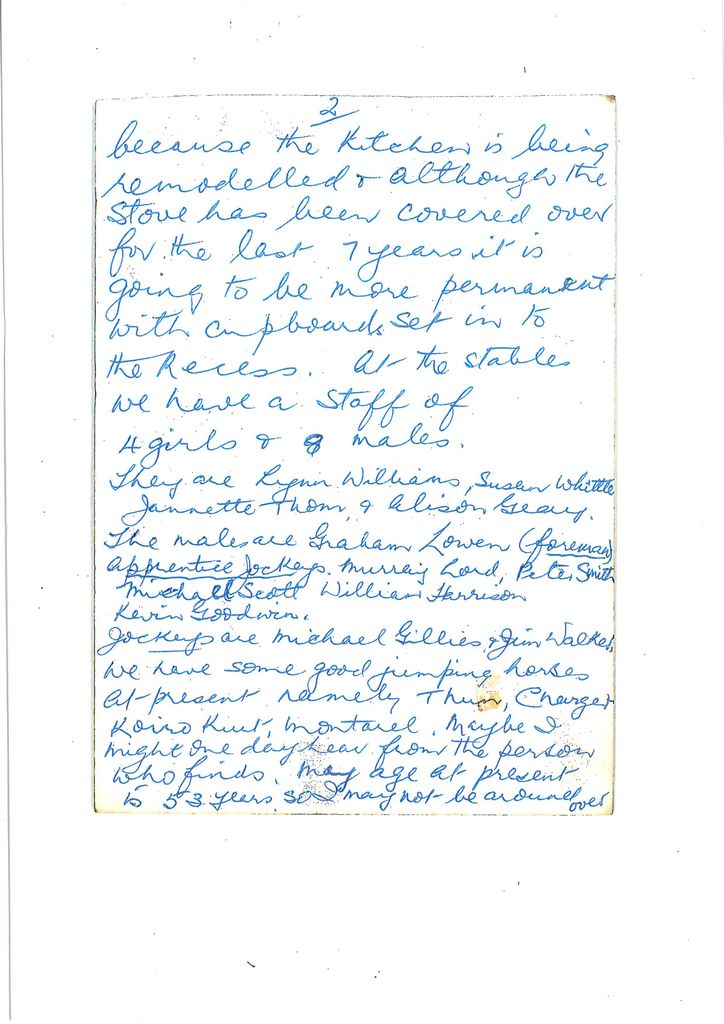 2
because the Kitchen is being
remodelled & although the
Stove has been covered over
for the last 7 years it is
going to be more permanent
with cupboards set in to
the Recess. At the stables
we have a staff of
4 girls & 8 males.
They are Lynn Williams, Susan Whittle
Jannette Thom, & Alison Geary.
The males are Graham Lowen (foreman)
apprentice Jockeys. Murray Lord, Peter Smith
Michael Scott William Harrison
Kevin Goodwin.
Jockeys are Michael Gillies, & Jim Walker.
We have some good jumping horses
at present namely Thum, Charger
Koiro Montarel. Maybe I
might one day hear from the person
who finds. My age at present
is 53 years, so I may not be around
over